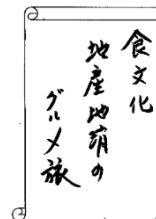 食文化
地産地消の
グルメ旅